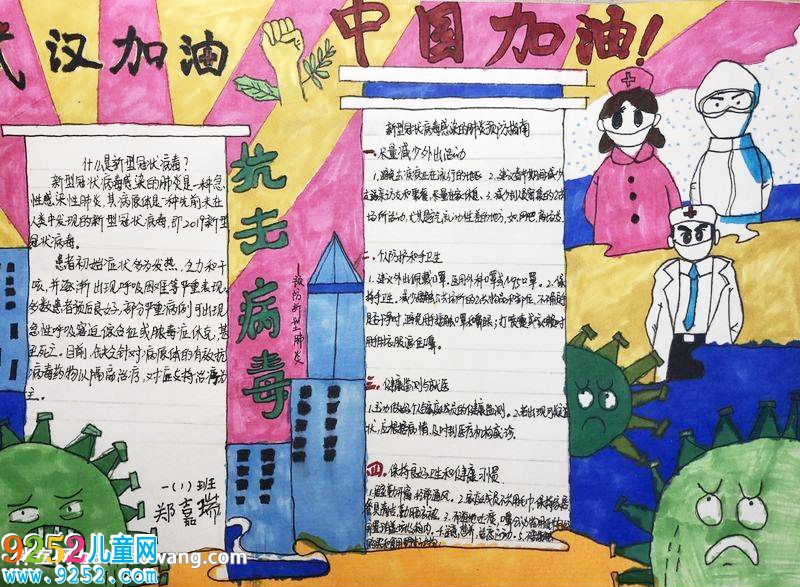 武汉加油
中国加油!
抗击病毒
—预防新型肺炎
什么是新型冠状病毒?
新型冠状病毒感染的肺炎是一种急
性感染性肺炎,其病原体是一种先前未在
人类中发现的新型冠状病毒,即2019新型
冠状病毒。
患者初始症状多为发热、乏力和干
咳,并逐渐出现呼吸困难等严重表现。
多数患者预后良好,部分严重病例可出现
急性呼吸窘迫综合征或脓毒症休克,甚
至死亡。目前,缺乏针对病原体的有效抗
病毒药物,以隔离治疗、对症支持治疗为
主。
一(1)班
郑嘉瑞
新型冠状病毒感染的肺炎预防指南
一、尽量减少外出活动
1、避免去疾病正在流行的地区。2、建议春节期间减少
走亲访友和聚餐,尽量在家休息。3、减少到人员密集的公共
场所活动,尤其是空气流动性差的地方,
二、个人防护和手卫生
1、建议外出佩戴口罩。医用外科口罩或N95口罩。2、保
持手卫生。减少接触公共场所的公共物品和部位,
三、健康监测与就医
1、主动做好个人与家庭成员的健康监测。2、若出现可疑症
状,应根据病情,及时到医疗机构就诊。
四、保持良好卫生和健康习惯
1、居室勤开窗,经常通风。2、家庭成员不共用毛巾,保持家居
9252儿童网
www.9252.com